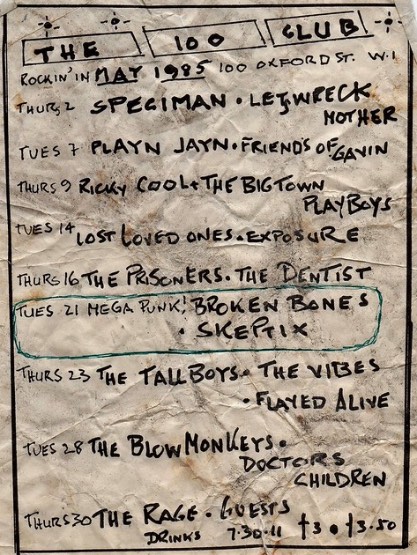 THE 100 CLUB
ROCKIN' IN MAY 1985 100 OXFORD ST. W.1
THURS 2 SPECIMAN • LETS WRECK
MOTHER
TUES 7 PLAYN JAYN • FRIENDS OF GAVIN
THURS 9 RICKY COOL + THE BIG TOWN
PLAYBOYS
TUES 14 LOST LOVED ONES • EXPOSURE
THURS 16 THE PRISONERS • THE DENTIST
TUES 21 MEGA PUNK! BROKEN BONES
• SKEPTIX
THURS 23 THE TALL BOYS • THE VIBES
• FLAYED ALIVE
TUES 28 THE BLOW MONKEYS •
DOCTORS
CHILDREN
THURS 30 THE RAGE • GUESTS
DRINKS 7·30-11 £3 • £3.50